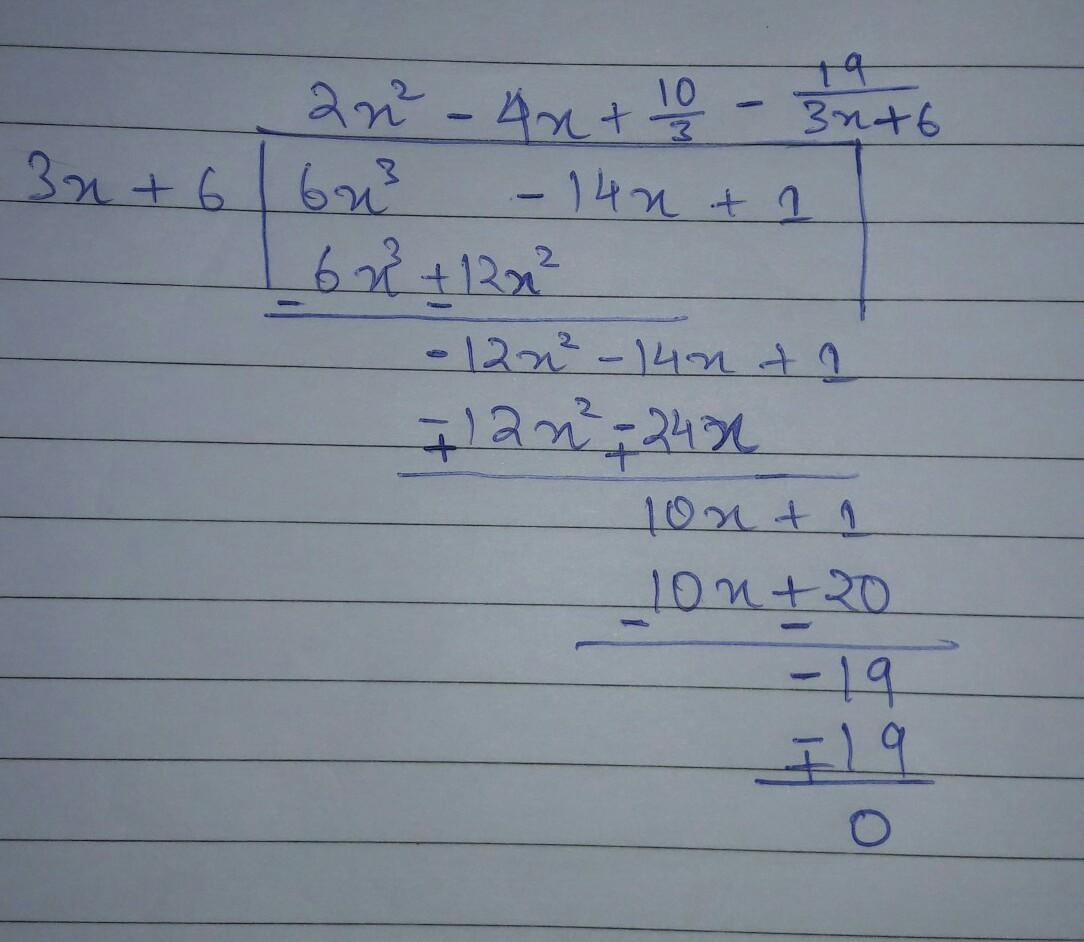 2x² - 4x + 10/3 - 19/(3x+6)
3x + 6 | 6x³ - 14x + 1
6x³ + 12x²
- -
-12x² - 14x + 1
-12x² - 24x
+ +
10x + 1
10x + 20
- -
-19
-19
+
0